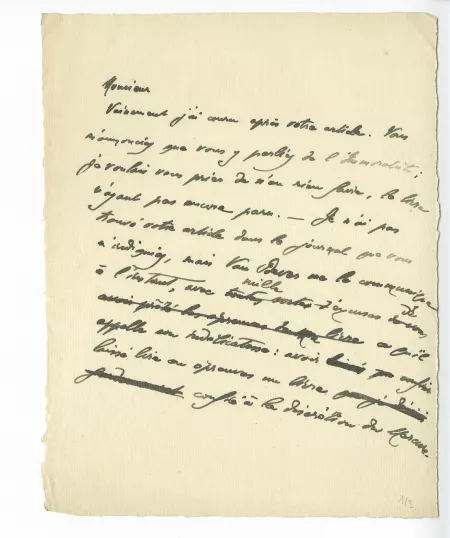 Monsieur
Vainement j'ai couru après votre article. Vous
m'annonciez que vous y parliez de l'Immoraliste;
je voulais vous prier de n'en rien faire, le livre
n'ayant pas encore paru. — Je n'ai pas
trouvé votre article dans le journal que vous
m'indiquiez, mais Van Bever me le communique
à l'instant, avec mille d'excuses de
avoir prêté les épreuves de livre ce qu'il
appelle son indélicatesse: avoir
laissé lire en épreuves un livre que j'
confié à la discrétion du Mercure.
1/3